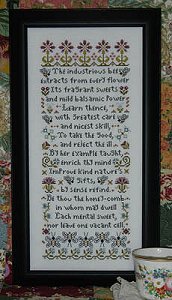 The industrious bee
extracts from every flower
Its fragrant sweets
and mild balsamic power
Learn thence,
with greatest care
and nicest skill,
To take the Good,
and reject the ill.
By her example taught
enrich thy mind
Improve kind nature's
Gifts,
by sense refine.
Be thou the honey-comb
in whom may dwell
Each mental sweet,
nor leave one vacant cell.